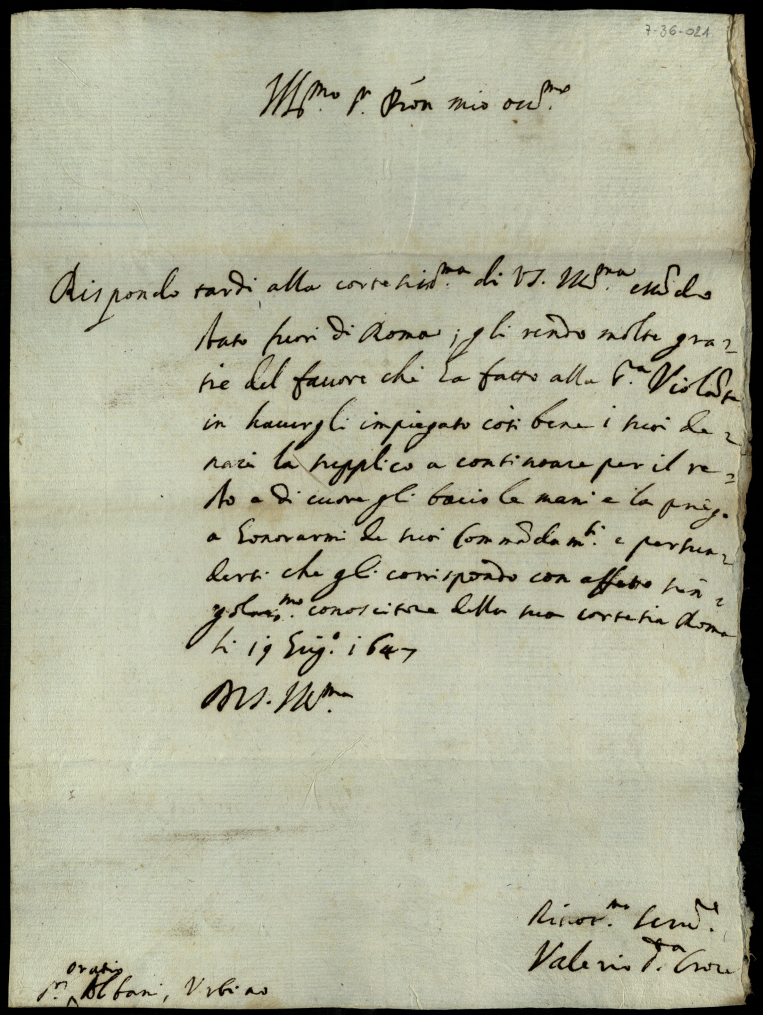 7-36-021
Ill.mo Sr. Pron mio oss.mo
Rispondo tardi alla cortesiss.ma di VS. Ill.ma essendo
stato fuori di Roma; gli rendo molte gra=
tie del fauore che ha fatto alla S.ra Violante
in hauergli impiegato così bene i suoi de=
nari la supplico a continuare per il re=
sto e di cuore gli bacio le mani e la prego
a honorarmi de suoi Commandam.ti e persua=
dersi che gli corrispondo con affetto sin=
golariss.mo conoscitore della sua cortesia Roma
li 19 Giug.o 1647
Di VS. Ill.ma
Seru.re
Valerio S.ta Croce
Sr. Oratio Albani, Vrbino